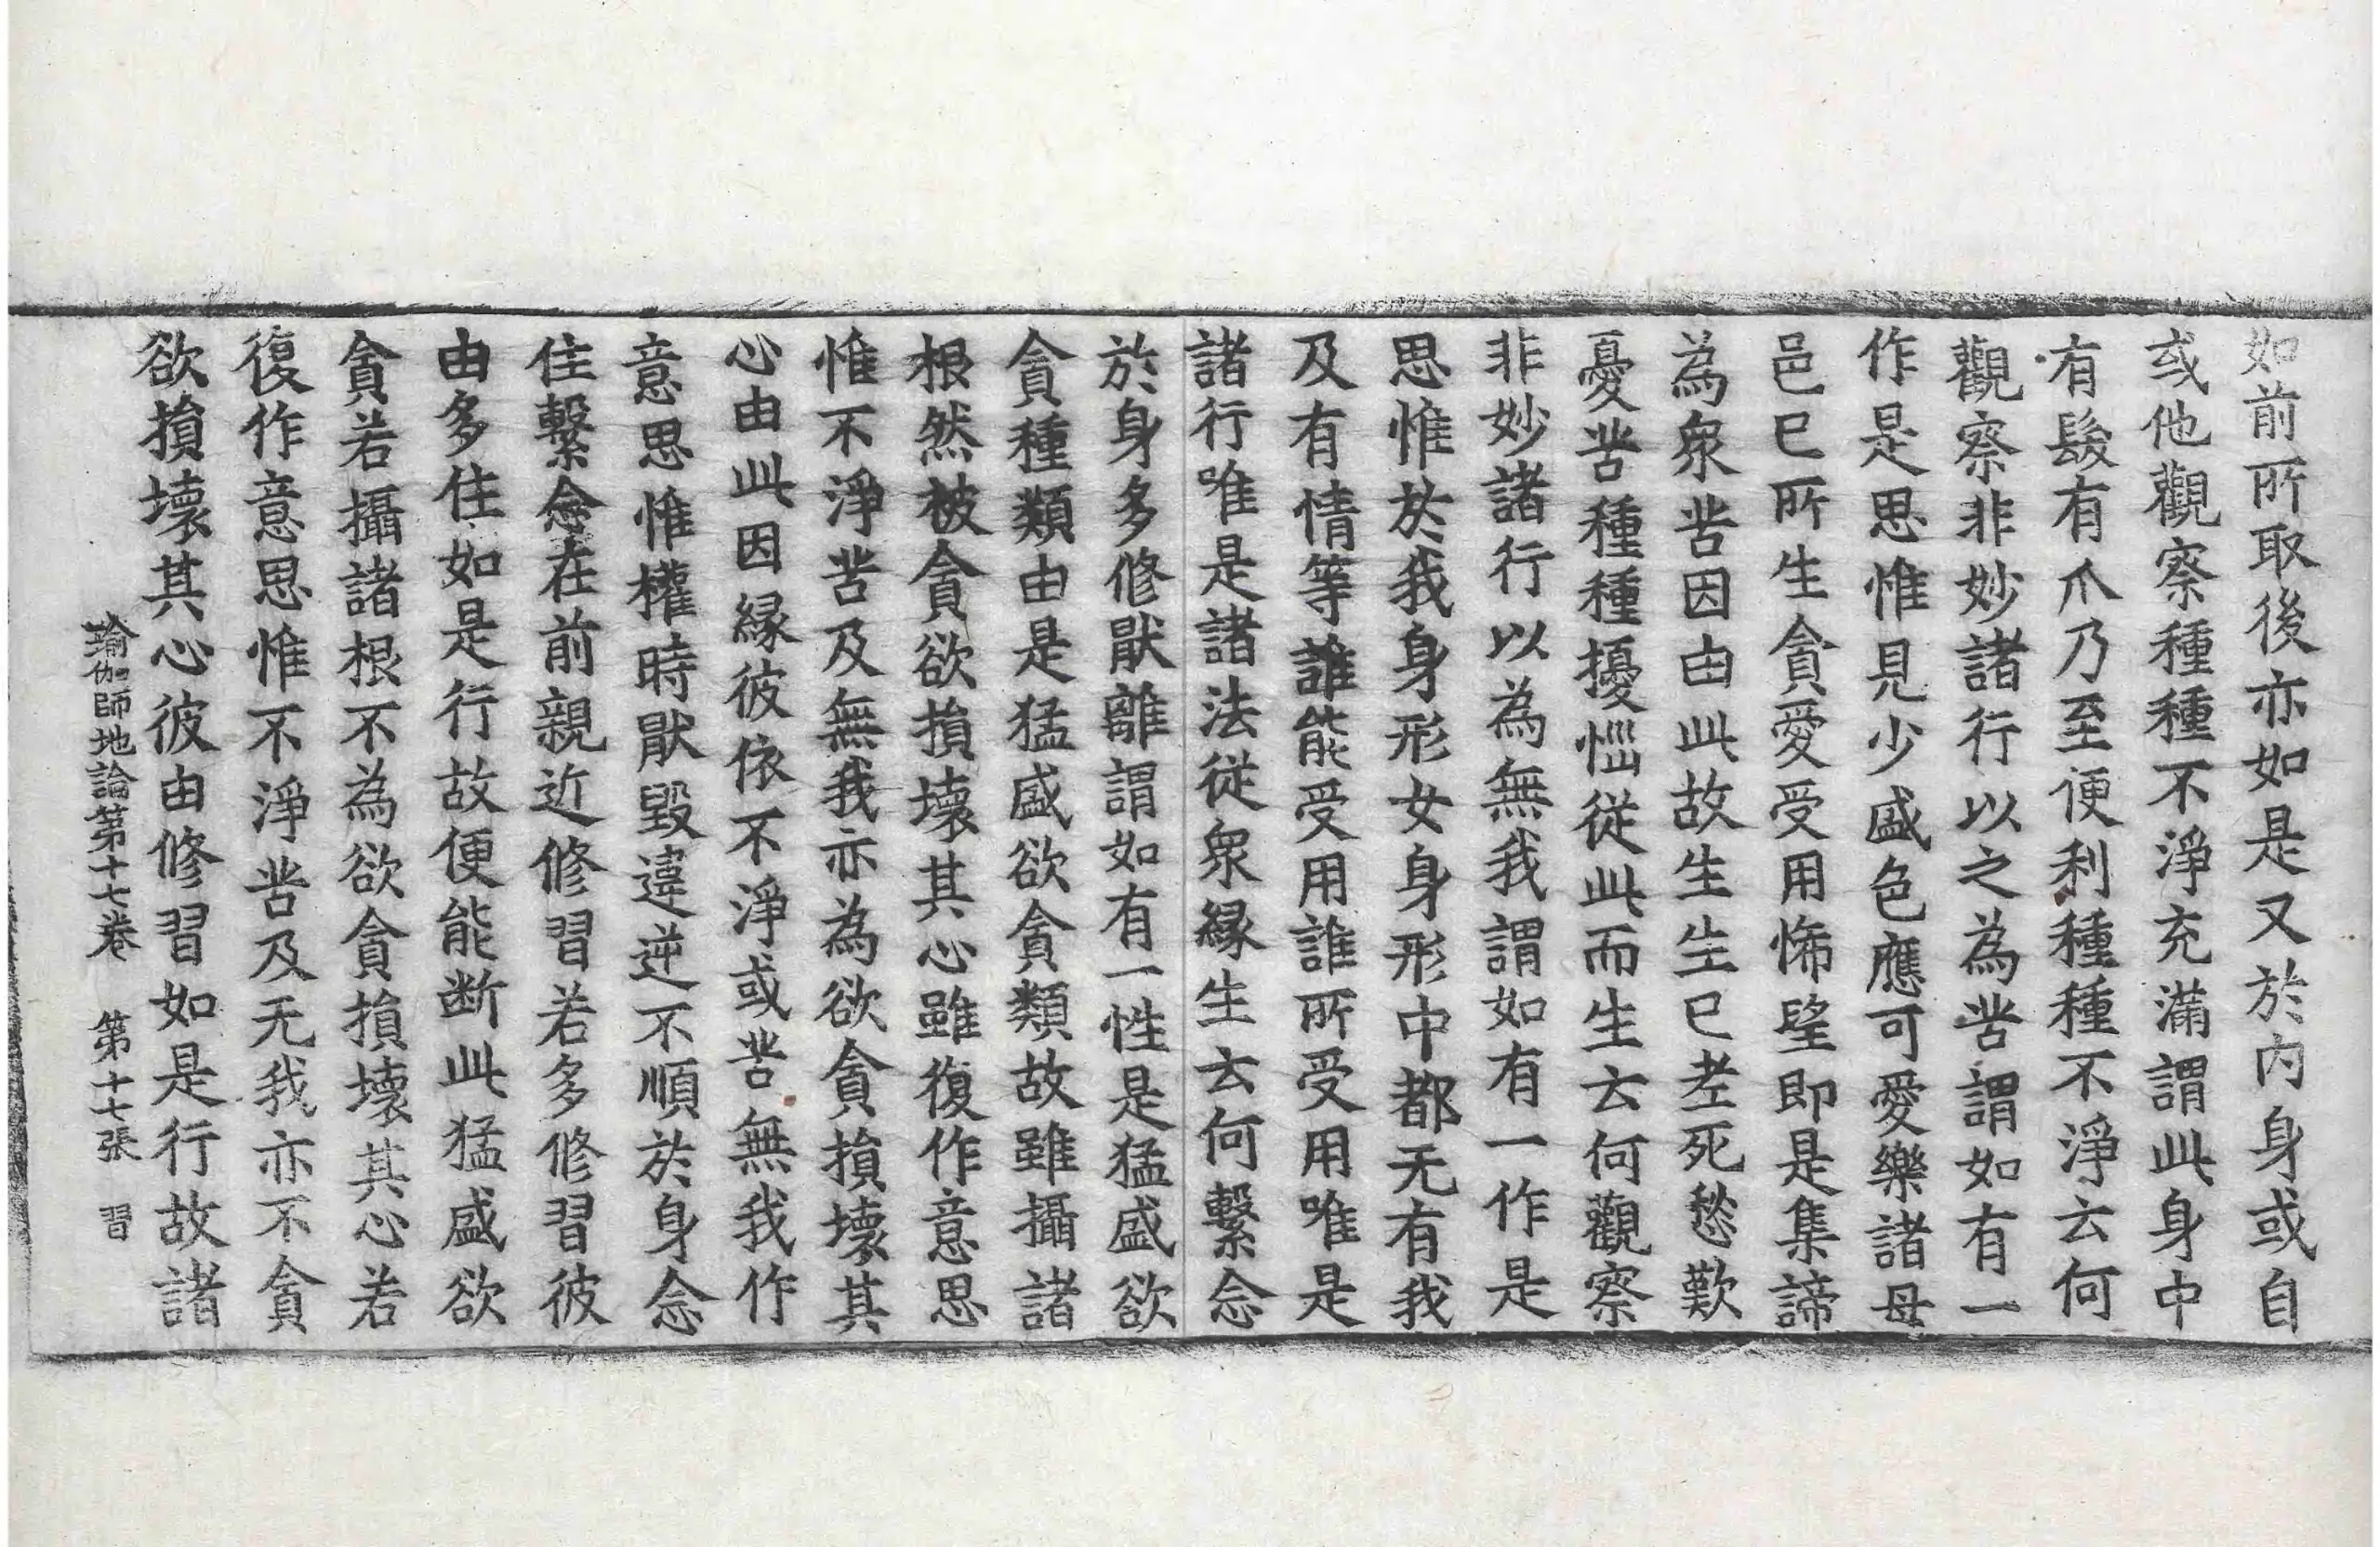 如前所取後亦如是又於內身或自
或他觀察種種不淨充滿謂此身中
有髮有爪乃至便利種種不淨云何
觀察非妙諸行以之為苦謂如有一
作是思惟見少盛色應可愛樂諸母
邑已所生貪愛受用悕望即是集諦
為衆苦因由此故生生已老死愁歎
憂苦種種擾惱從此而生云何觀察
非妙諸行以為無我謂如有一作是
思惟於我身形女身形中都无有我
及有情等誰能受用誰所受用唯是
諸行唯是諸法從衆緣生云何繫念
於身多修猒離謂如有一性是猛盛欲
貪種類由是猛盛欲貪類故雖攝諸
根然被貪欲損壞其心雖復作意思
惟不淨苦及無我亦為欲貪損壞其
心由此因緣彼依不淨或苦無我作
意思惟權時猒毀違逆不順於身念
住繫念在前親近修習若多修習彼
由多住如是行故便能断此猛盛欲
貪若攝諸根不為欲貪損壞其心若
復作意思惟不淨苦及无我亦不貪
欲損壞其心彼由修習如是行故諸
瑜伽師地論第十七卷　第十七張　習